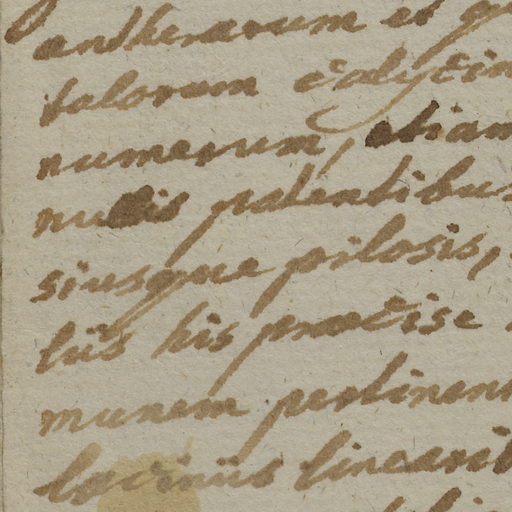 antherarum et
talorum calycin
numerum, etiam
nullis patentibus
siusque pilosis,
liis his praecise
munem pertinen
laciniis linearib